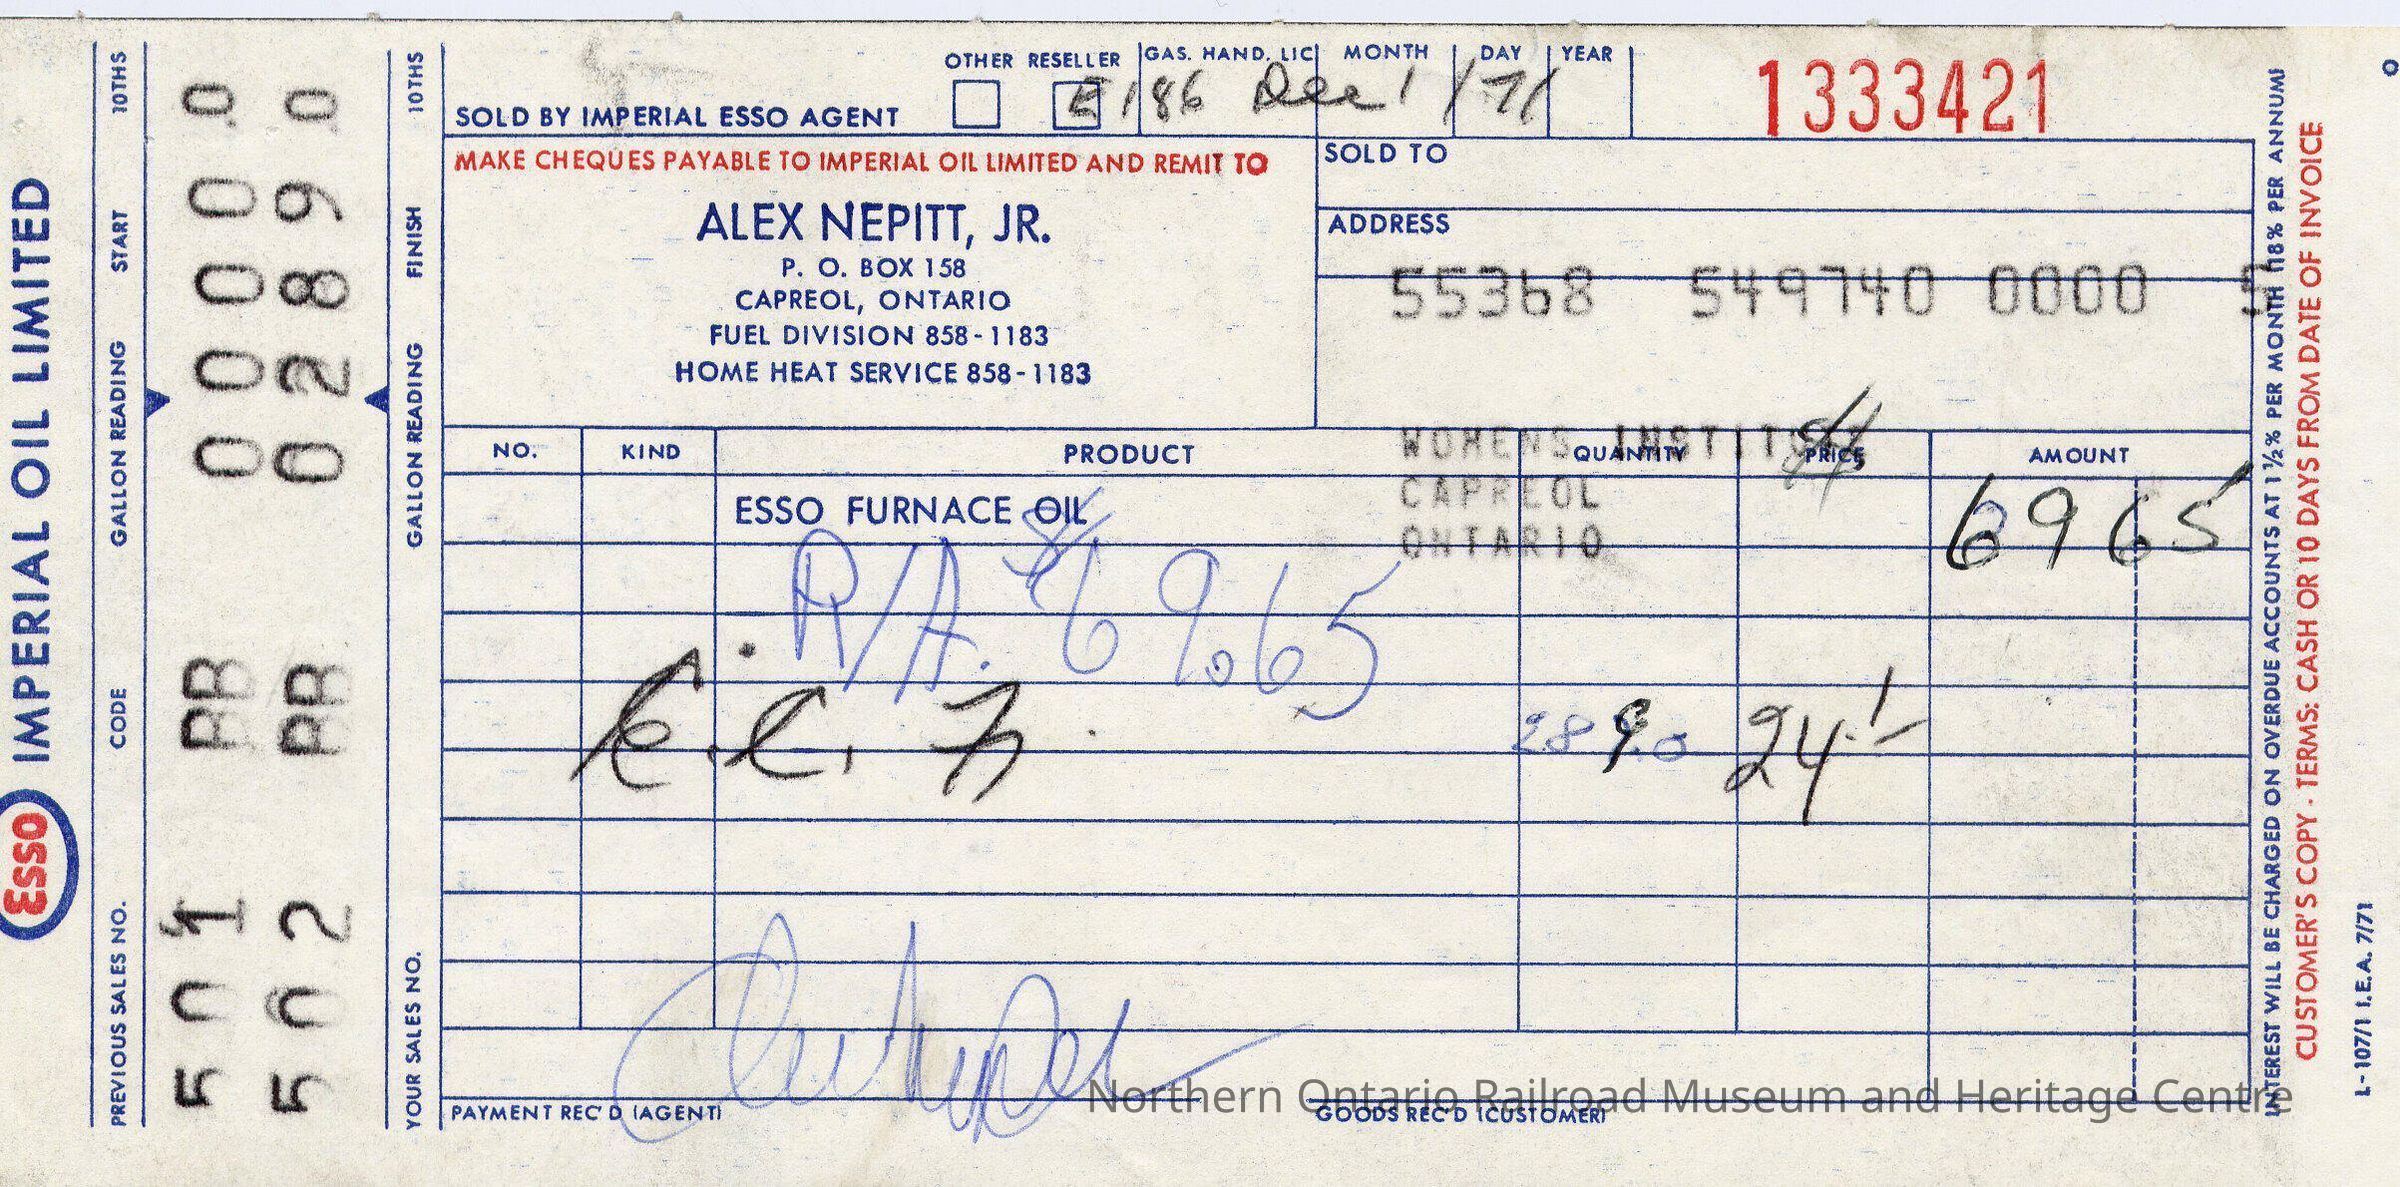 OTHER RESELLER GAS. HAND. LIC MONTH DAY YEAR
SOLD BY IMPERIAL ESSO AGENT E186 Dec 1 / 71 1333421
MAKE CHEQUES PAYABLE TO IMPERIAL OIL LIMITED AND REMIT TO
ALEX NEPITT, JR.
P. O. BOX 158
CAPREOL, ONTARIO
FUEL DIVISION 858-1183
HOME HEAT SERVICE 858-1183
SOLD TO
ADDRESS
55368 549740 0000 5
WOMENS INSTITUTE
CAPREOL
ONTARIO
NO. KIND PRODUCT QUANTITY PRICE AMOUNT
ESSO FURNACE OIL 69 65
P/A. 69.65
289.0 24.1
PAYMENT REC'D (AGENT) GOODS REC'D (CUSTOMER)
ESSO IMPERIAL OIL LIMITED
PREVIOUS SALES NO. CODE GALLON READING START 10THS
501 PB 0000 0
502 PB 0289 0
YOUR SALES NO. GALLON READING FINISH 10THS
INTEREST WILL BE CHARGED ON OVERDUE ACCOUNTS AT 1½% PER MONTH (18% PER ANNUM)
CUSTOMER'S COPY - TERMS: CASH OR 10 DAYS FROM DATE OF INVOICE
L-107/1 I.E.A. 7/71
Northern Ontario Railroad Museum and Heritage Centre